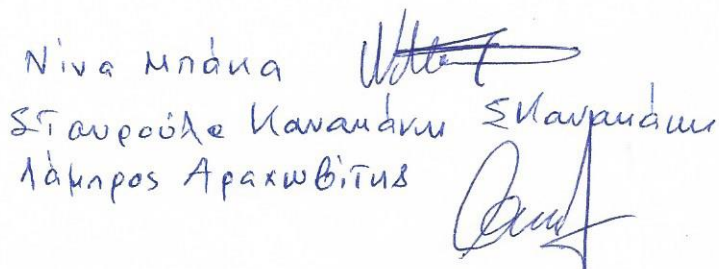 Νίνα Μπάκα
Σταυρούλα Κανακάκη ΣΚανακάκη
Λάμπρος Αραχωβίτης